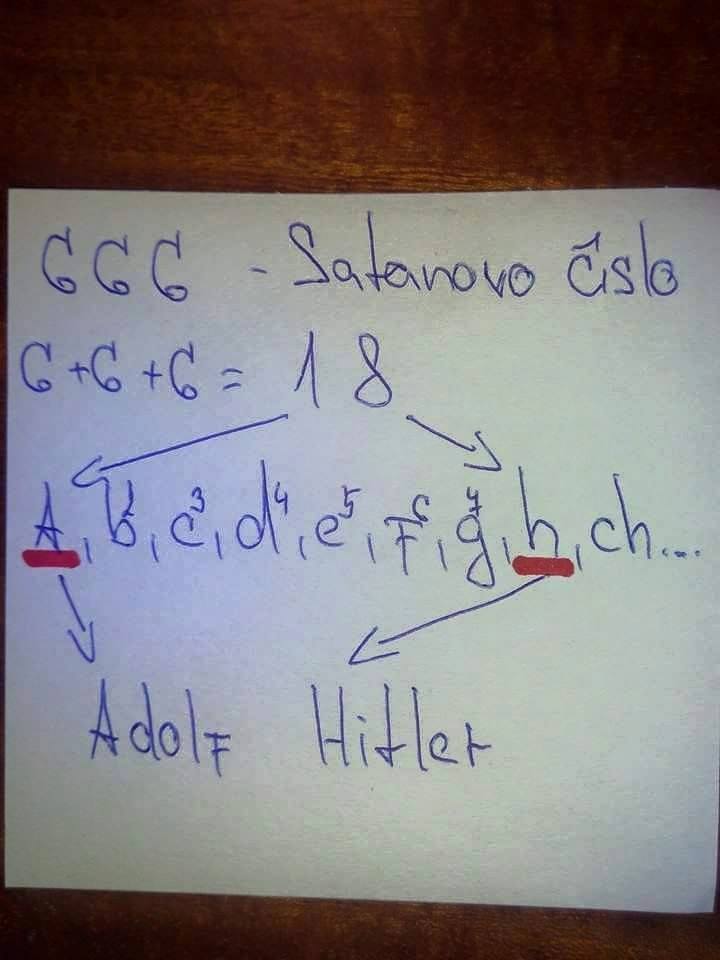 666 - Satanovo číslo
6+6+6= 18
A, b², c³, d⁴, e⁵, f⁶, g⁷, h, ch...
Adolf Hitler